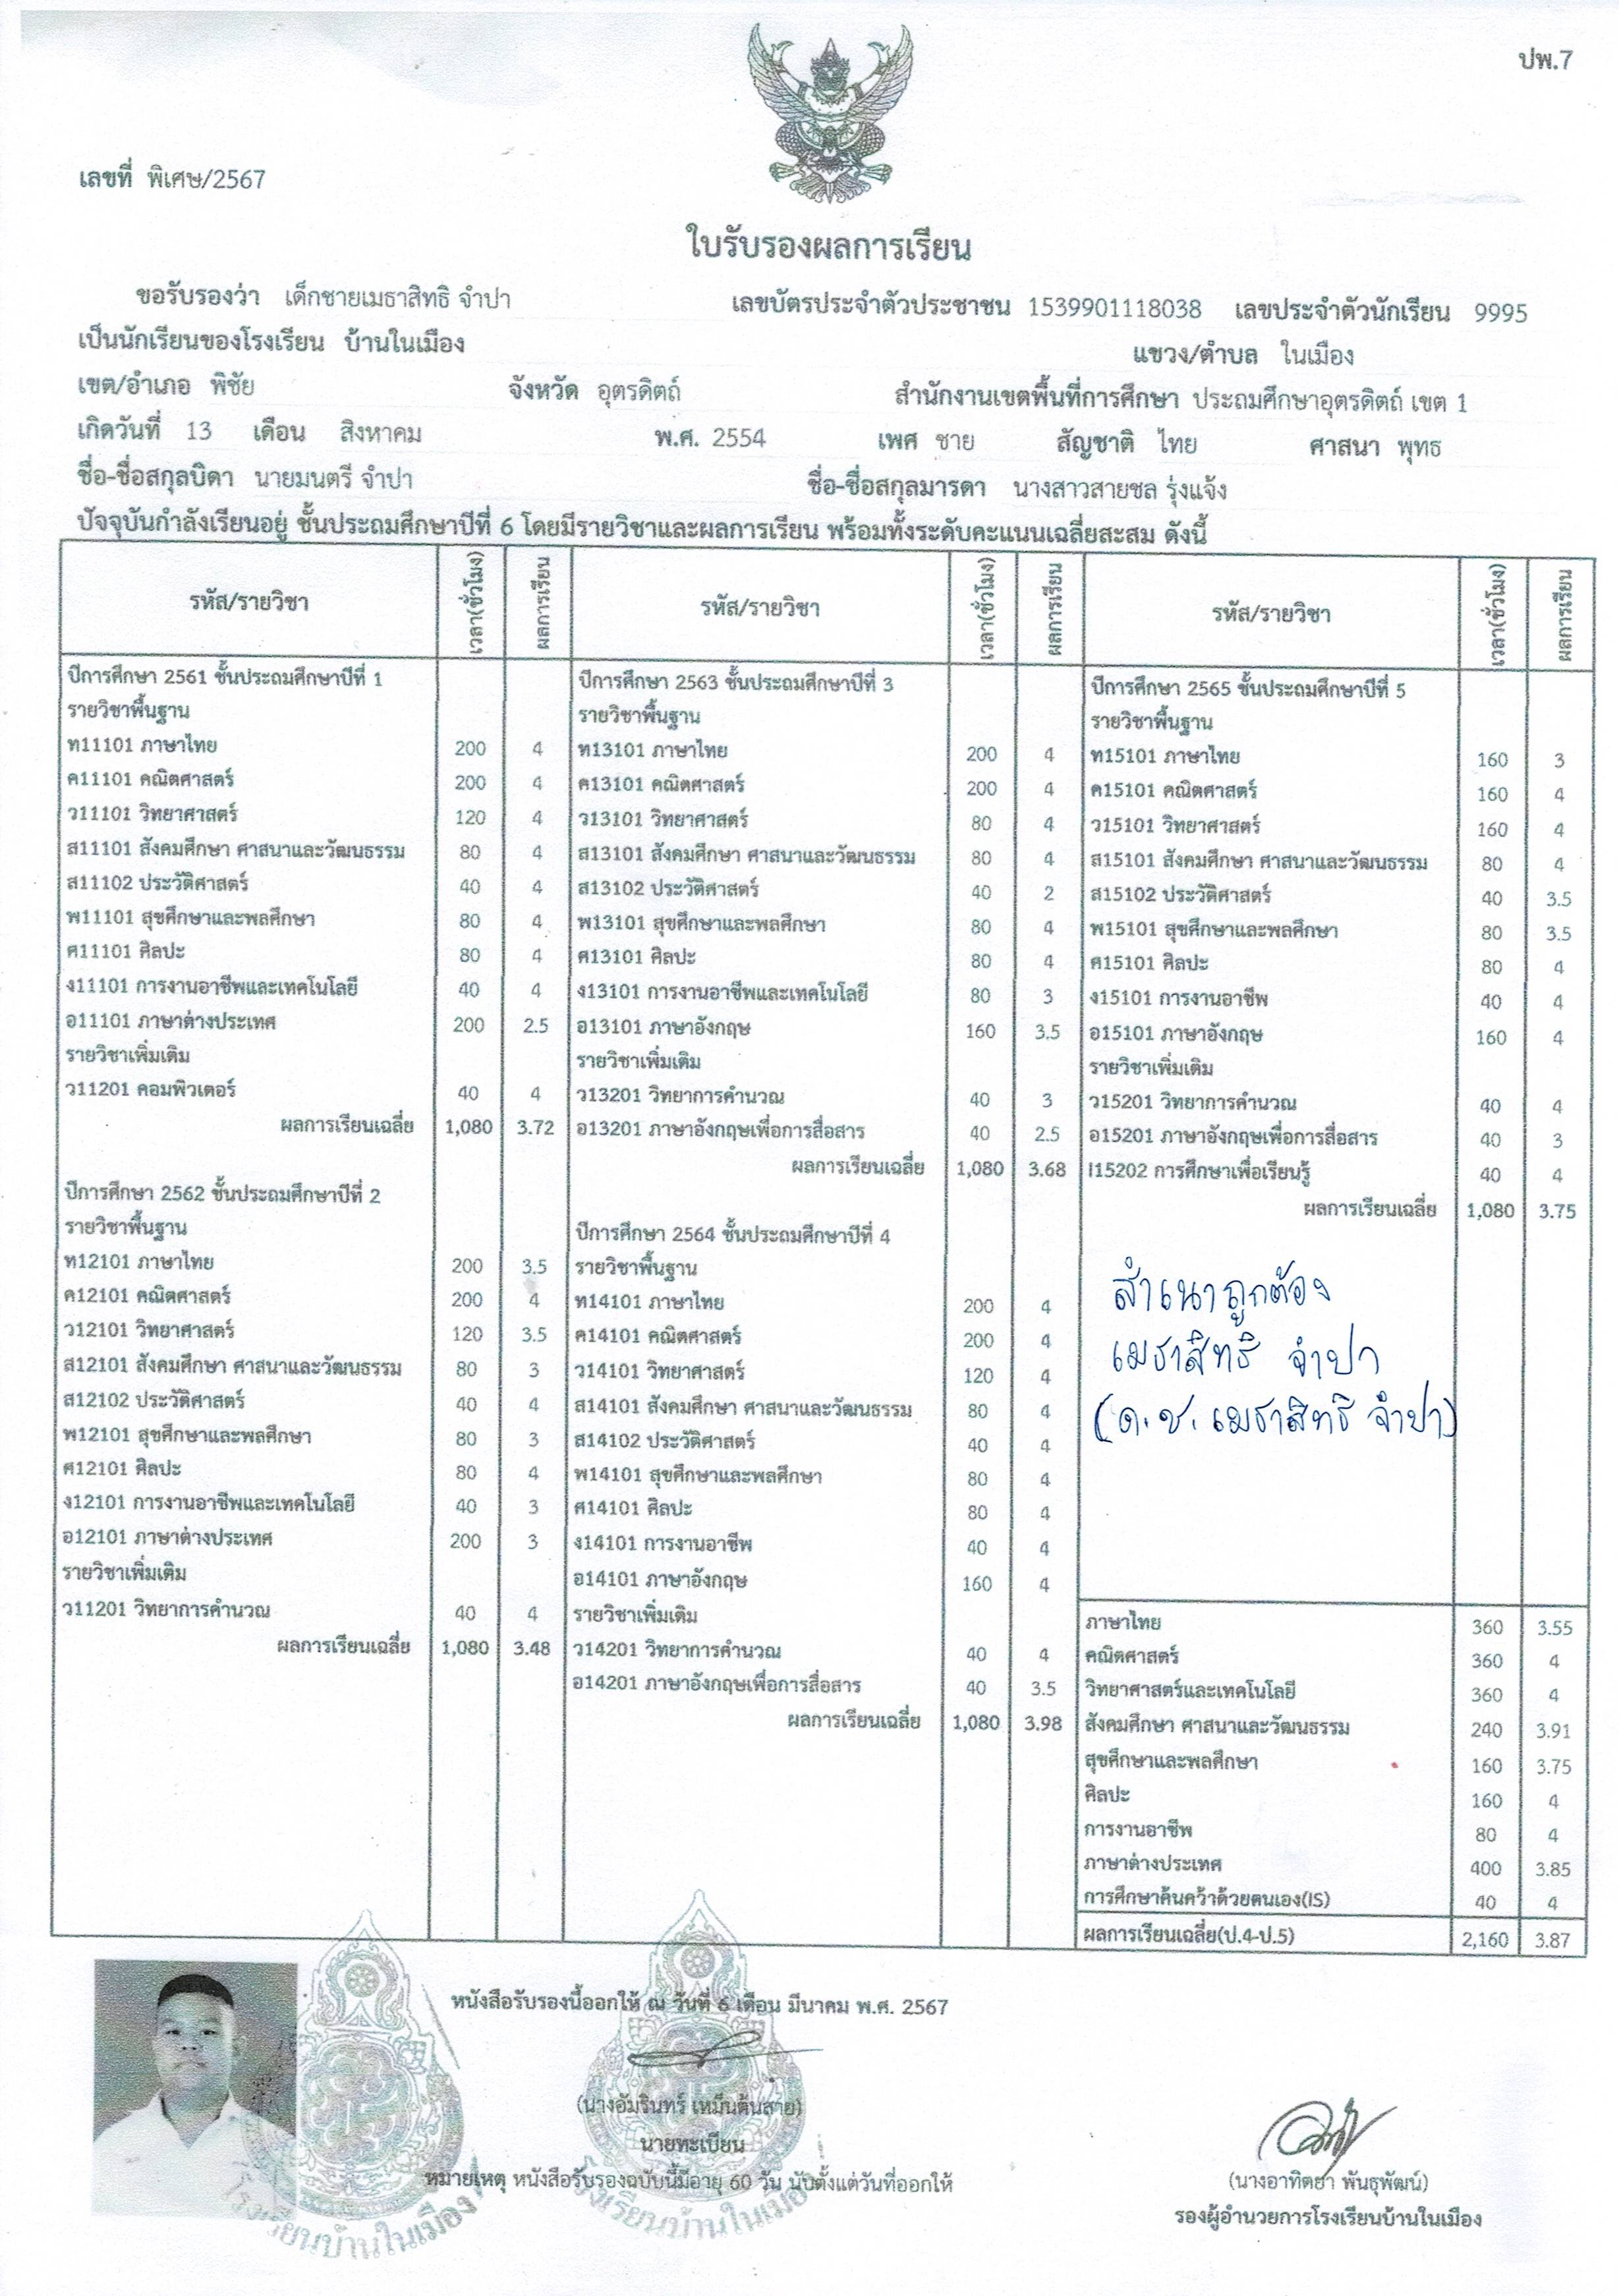 ปพ.7
เลขที่ พิเศษ/2567
ใบรับรองผลการเรียน
ขอรับรองว่า เด็กชายเมธาสิทธิ จำปา เลขบัตรประจำตัวประชาชน 1539901118038 เลขประจำตัวนักเรียน 9995
เป็นนักเรียนของโรงเรียน บ้านในเมือง แขวง/ตำบล ในเมือง
เขต/อำเภอ พิชัย จังหวัด อุตรดิตถ์ สำนักงานเขตพื้นที่การศึกษา ประถมศึกษาอุตรดิตถ์ เขต 1
เกิดวันที่ 13 เดือน สิงหาคม พ.ศ. 2554 เพศ ชาย สัญชาติ ไทย ศาสนา พุทธ
ชื่อ-ชื่อสกุลบิดา นายมนตรี จำปา ชื่อ-ชื่อสกุลมารดา นางสาวสายชล รุ่งแจ้ง
ปัจจุบันกำลังเรียนอยู่ ชั้นประถมศึกษาปีที่ 6 โดยมีรายวิชาและผลการเรียน พร้อมทั้งระดับคะแนนเฉลี่ยสะสม ดังนี้
รหัส/รายวิชา เวลา(ชั่วโมง) ผลการเรียน
ปีการศึกษา 2561 ชั้นประถมศึกษาปีที่ 1
รายวิชาพื้นฐาน
ท11101 ภาษาไทย 200 4
ค11101 คณิตศาสตร์ 200 4
ว11101 วิทยาศาสตร์ 120 4
ส11101 สังคมศึกษา ศาสนาและวัฒนธรรม 80 4
ส11102 ประวัติศาสตร์ 40 4
พ11101 สุขศึกษาและพลศึกษา 80 4
ศ11101 ศิลปะ 80 4
ง11101 การงานอาชีพและเทคโนโลยี 40 4
อ11101 ภาษาต่างประเทศ 200 2.5
รายวิชาเพิ่มเติม
ว11201 คอมพิวเตอร์ 40 4
ผลการเรียนเฉลี่ย 1,080 3.72
ปีการศึกษา 2562 ชั้นประถมศึกษาปีที่ 2
รายวิชาพื้นฐาน
ท12101 ภาษาไทย 200 3.5
ค12101 คณิตศาสตร์ 200 4
ว12101 วิทยาศาสตร์ 120 3.5
ส12101 สังคมศึกษา ศาสนาและวัฒนธรรม 80 3
ส12102 ประวัติศาสตร์ 40 4
พ12101 สุขศึกษาและพลศึกษา 80 3
ศ12101 ศิลปะ 80 4
ง12101 การงานอาชีพและเทคโนโลยี 40 3
อ12101 ภาษาต่างประเทศ 200 3
รายวิชาเพิ่มเติม
ว11201 วิทยาการคำนวณ 40 4
ผลการเรียนเฉลี่ย 1,080 3.48
รหัส/รายวิชา เวลา(ชั่วโมง) ผลการเรียน
ปีการศึกษา 2563 ชั้นประถมศึกษาปีที่ 3
รายวิชาพื้นฐาน
ท13101 ภาษาไทย 200 4
ค13101 คณิตศาสตร์ 200 4
ว13101 วิทยาศาสตร์ 80 4
ส13101 สังคมศึกษา ศาสนาและวัฒนธรรม 80 4
ส13102 ประวัติศาสตร์ 40 2
พ13101 สุขศึกษาและพลศึกษา 80 4
ศ13101 ศิลปะ 80 4
ง13101 การงานอาชีพและเทคโนโลยี 80 3
อ13101 ภาษาอังกฤษ 160 3.5
รายวิชาเพิ่มเติม
ว13201 วิทยาการคำนวณ 40 3
อ13201 ภาษาอังกฤษเพื่อการสื่อสาร 40 2.5
ผลการเรียนเฉลี่ย 1,080 3.68
ปีการศึกษา 2564 ชั้นประถมศึกษาปีที่ 4
รายวิชาพื้นฐาน
ท14101 ภาษาไทย 200 4
ค14101 คณิตศาสตร์ 200 4
ว14101 วิทยาศาสตร์ 120 4
ส14101 สังคมศึกษา ศาสนาและวัฒนธรรม 80 4
ส14102 ประวัติศาสตร์ 40 4
พ14101 สุขศึกษาและพลศึกษา 80 4
ศ14101 ศิลปะ 80 4
ง14101 การงานอาชีพ 40 4
อ14101 ภาษาอังกฤษ 160 4
รายวิชาเพิ่มเติม
ว14201 วิทยาการคำนวณ 40 4
อ14201 ภาษาอังกฤษเพื่อการสื่อสาร 40 3.5
ผลการเรียนเฉลี่ย 1,080 3.98
รหัส/รายวิชา เวลา(ชั่วโมง) ผลการเรียน
ปีการศึกษา 2565 ชั้นประถมศึกษาปีที่ 5
รายวิชาพื้นฐาน
ท15101 ภาษาไทย 160 3
ค15101 คณิตศาสตร์ 160 4
ว15101 วิทยาศาสตร์ 160 4
ส15101 สังคมศึกษา ศาสนาและวัฒนธรรม 80 4
ส15102 ประวัติศาสตร์ 40 3.5
พ15101 สุขศึกษาและพลศึกษา 80 3.5
ศ15101 ศิลปะ 80 4
ง15101 การงานอาชีพ 40 4
อ15101 ภาษาอังกฤษ 160 4
รายวิชาเพิ่มเติม
ว15201 วิทยาการคำนวณ 40 4
อ15201 ภาษาอังกฤษเพื่อการสื่อสาร 40 3
I15202 การศึกษาเพื่อเรียนรู้ 40 4
ผลการเรียนเฉลี่ย 1,080 3.75
สำเนาถูกต้อง
เมธาสิทธิ จำปา
(ด.ช. เมธาสิทธิ จำปา)
ภาษาไทย 360 3.55
คณิตศาสตร์ 360 4
วิทยาศาสตร์และเทคโนโลยี 360 4
สังคมศึกษา ศาสนาและวัฒนธรรม 240 3.91
สุขศึกษาและพลศึกษา 160 3.75
ศิลปะ 160 4
การงานอาชีพ 80 4
ภาษาต่างประเทศ 400 3.85
การศึกษาค้นคว้าด้วยตนเอง(IS) 40 4
ผลการเรียนเฉลี่ย(ป.4-ป.5) 2,160 3.87
หนังสือรับรองนี้ออกให้ ณ วันที่ 6 เดือน มีนาคม พ.ศ. 2567
(นางอัมรินทร์ เหม็นต้นสาย)
นายทะเบียน
หมายเหตุ หนังสือรับรองฉบับนี้มีอายุ 60 วัน นับตั้งแต่วันที่ออกให้
(นางอาทิตยา พันธุพัฒน์)
รองผู้อำนวยการโรงเรียนบ้านในเมือง
โรงเรียนบ้านในเมือง
โรงเรียนบ้านในเมือง